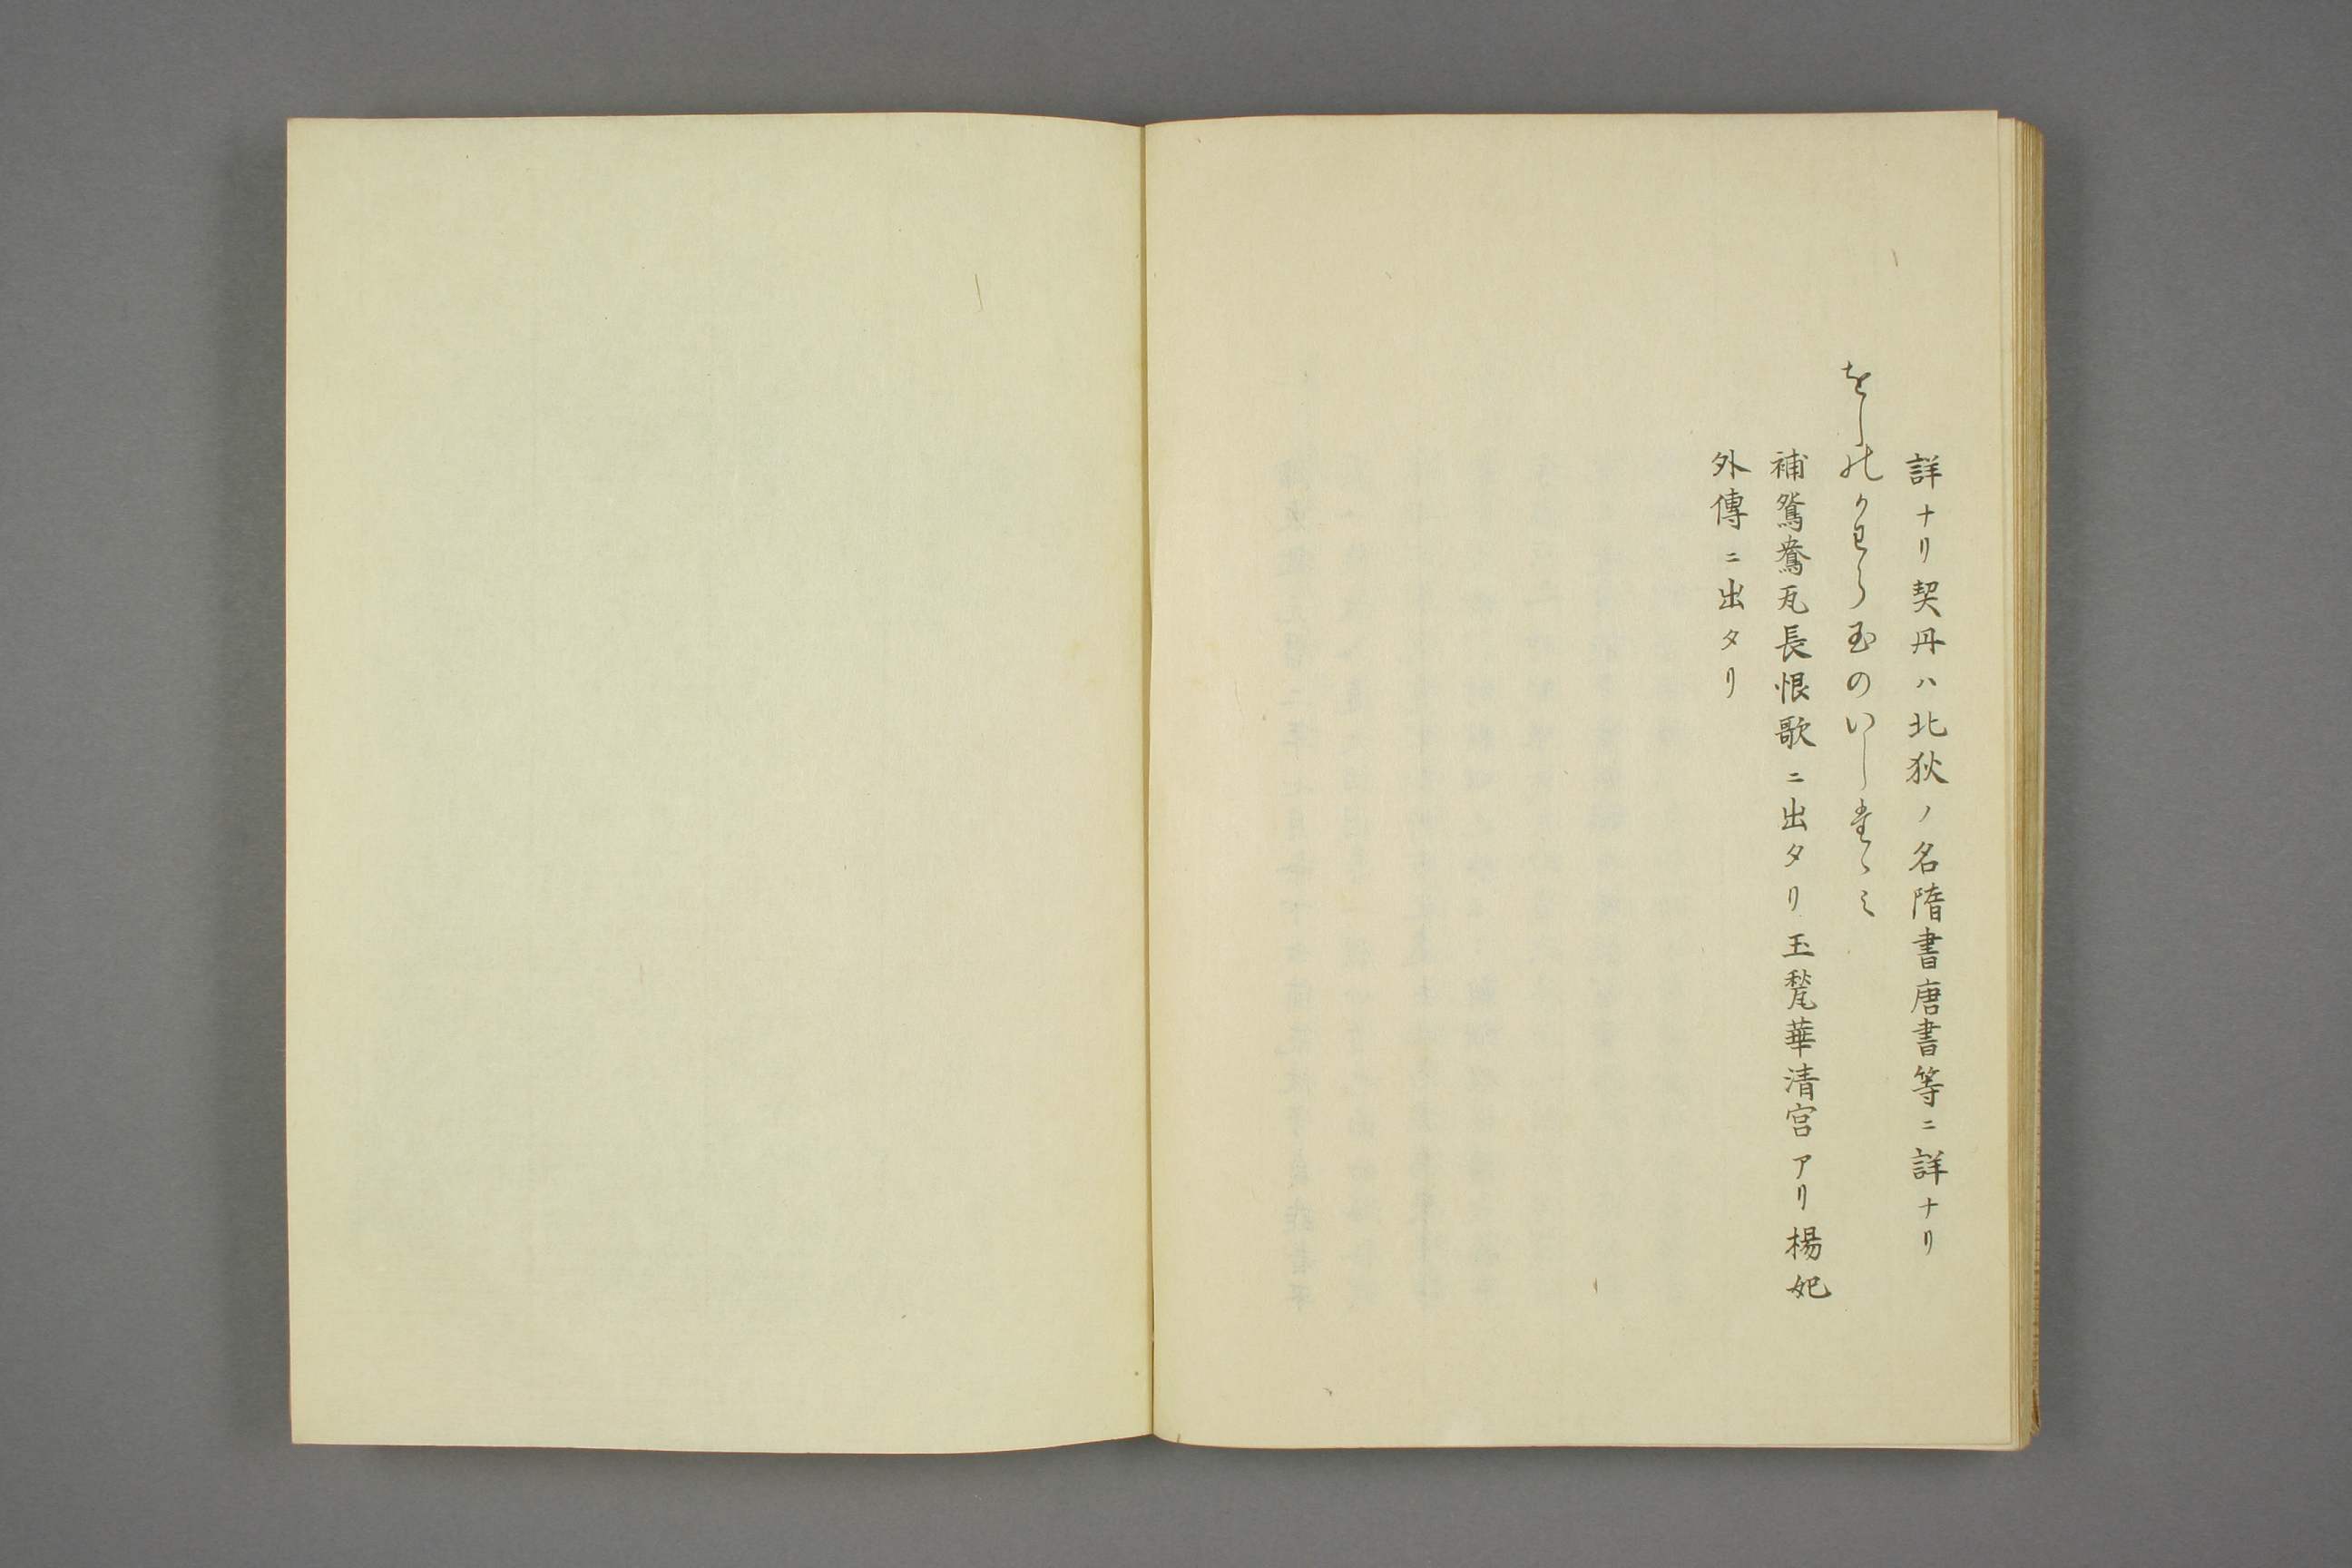 詳ナリ契丹ハ北狄ノ名隋書唐書等ニ詳ナリ
をしのかわら玉のいしたゝみ
補鴛鴦瓦長恨歌ニ出タリ玉甃華清宮アリ楊妃
外傳ニ出タリ